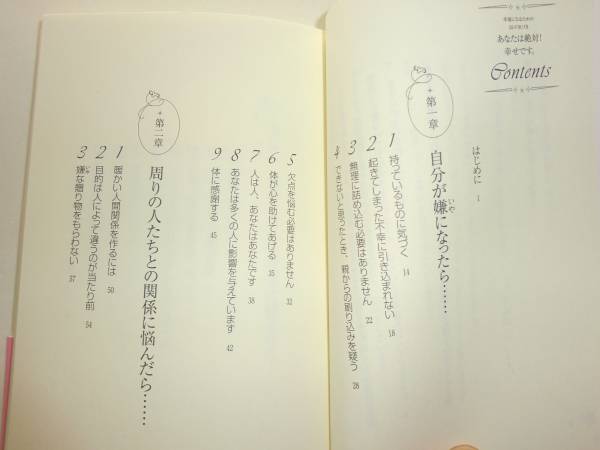 あなたは絶対!
幸せです。
Contents
はじめに 1
第一章
自分が嫌になったら……
いや
1 持っているものに気づく 14
2 起きてしまった不幸に引き込まれない 18
3 無理に詰め込む必要はありません 22
4 できないと思ったとき、親からの刷り込みを疑う 28
5 欠点を悩む必要はありません 32
6 体が心を助けてあげる 35
7 人は人、あなたはあなたです 38
8 あなたは多くの人に影響を与えています 42
9 体に感謝する 45
第二章
周りの人たちとの関係に悩んだら……
1 暖かい人間関係を作るには 50
2 目的は人によって違うのが当たり前 54
3 嫌な贈り物をもらわない 57